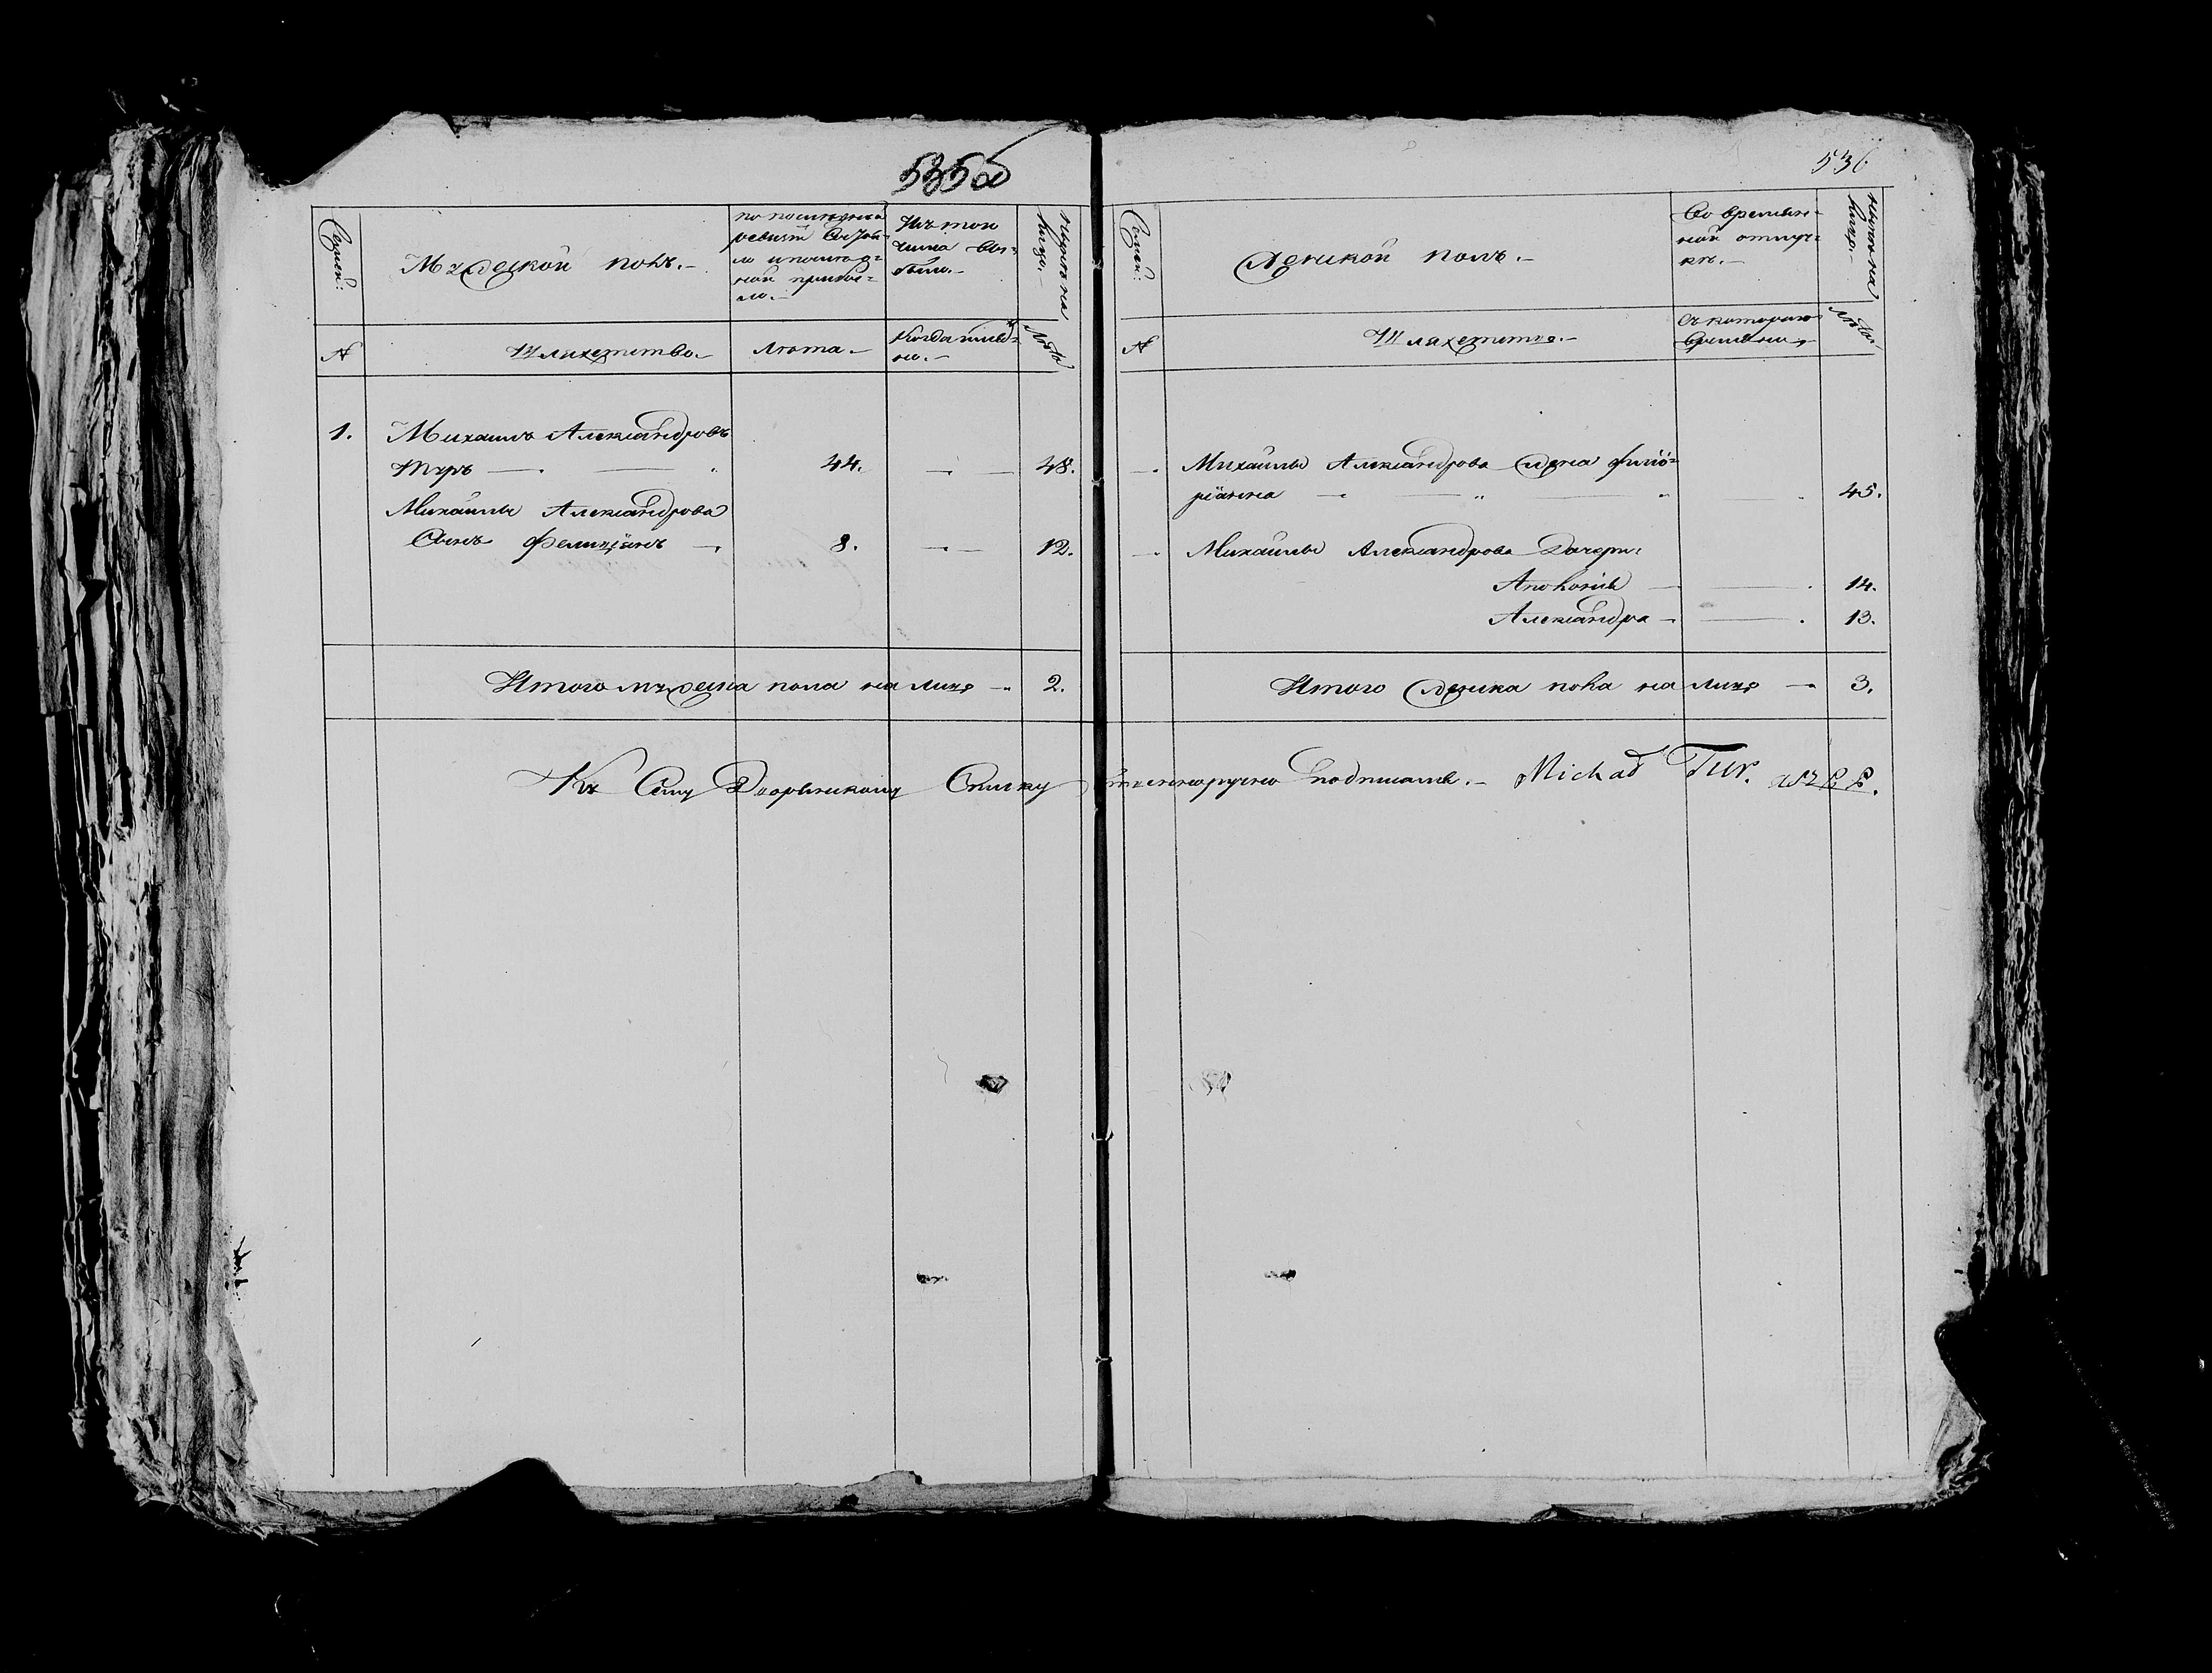 535об
Семей:
Мужеской полъ.-
по последней
ревизіи состоя-
ло и после о-
ной прибы-
ло.-
Изъ того
числа вы-
было.-
Ныне на
лицо.-
№
Шляхетство.-
Лета.-
Когда имян-
но.-
Лета
1. Михаилъ Александровъ
Туръ — 44. — 48.
Михаилы Александрова
Сынъ Фелиціянъ — 8. — 12.
Итого мужеска пола на лицо — 2.
536
Семей:
Женской полъ.-
Во времен-
ной отлуч-
ке.-
Ныне на
лицо.-
№
Шляхетство.-
Съ котораго
времени
Лета
— Михаилы Александрова жена Флио-
ріанна — 45.
— Михаилы Александрова Дочери:
Анполонія — 14.
Александра — 13.
Итого женска пола на лицо — 3.
Къ Сему Дворянскому Списку собственноручно подписался.- Michał Tur.